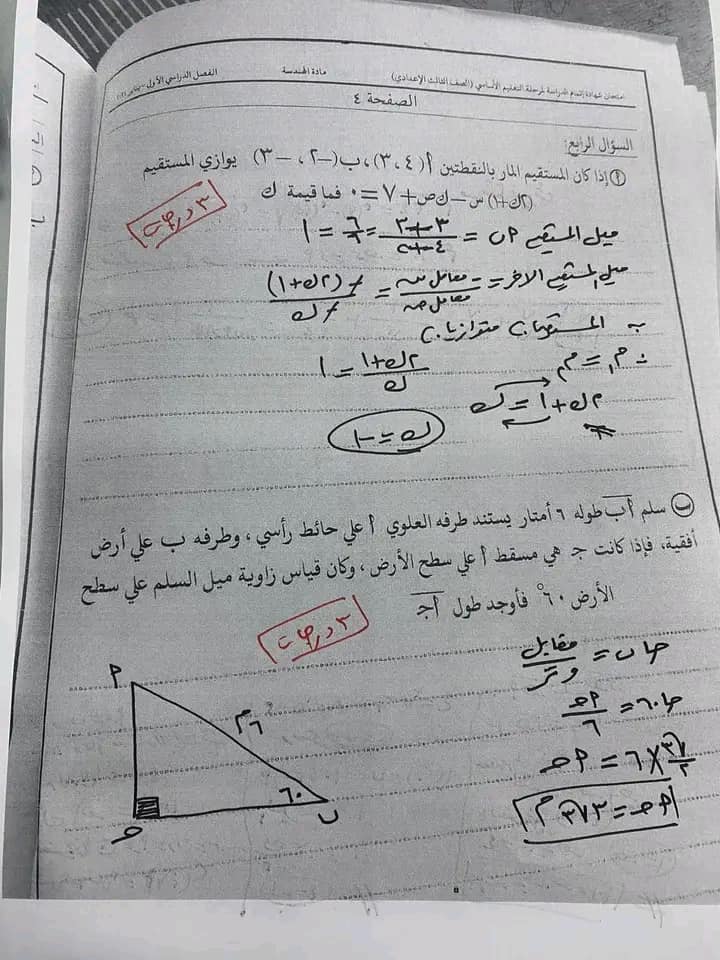 امتحان شهادة إتمام الدراسة لمرحلة التعليم الأساسي (الصف الثالث الإعدادي) مادة الهندسة الفصل الدراسي الأول -
الصفحة ٤
السؤال الرابع:
أ إذا كان المستقيم المار بالنقطتين أ(٤، ٣)، ب(-٢، -٣) يوازي المستقيم
(٢ك+١) س - ك ص + ٧ = ٠ فما قيمة ك
٣ درجات
ميل المستقيم أب = ٣+٣ / ٤+٢ = ٦/٦ = ١
ميل المستقيم الآخر = -معامل س / معامل ص = -(٢ك+١) / -ك
∵ المستقيمان متوازيان
∴ م١ = م٢ ٢ك+١ / ك = ١
٢ك+١ = ك
ك = -١
ب سلم أب طوله ٦ أمتار يستند طرفه العلوي أ علي حائط رأسي، وطرفه ب علي أرض
أفقية، فإذا كانت جـ هي مسقط أ علي سطح الأرض، وكان قياس زاوية ميل السلم علي سطح
الأرض ٦٠° فأوجد طول أجـ
٣ درجات
حا ب = مقابل / وتر
حا ٦٠ = أحـ / ٦
√٣/٢ × ٦ = أحـ
أحـ = ٣√٣ م
أ
٦م
٦٠
ب
حـ